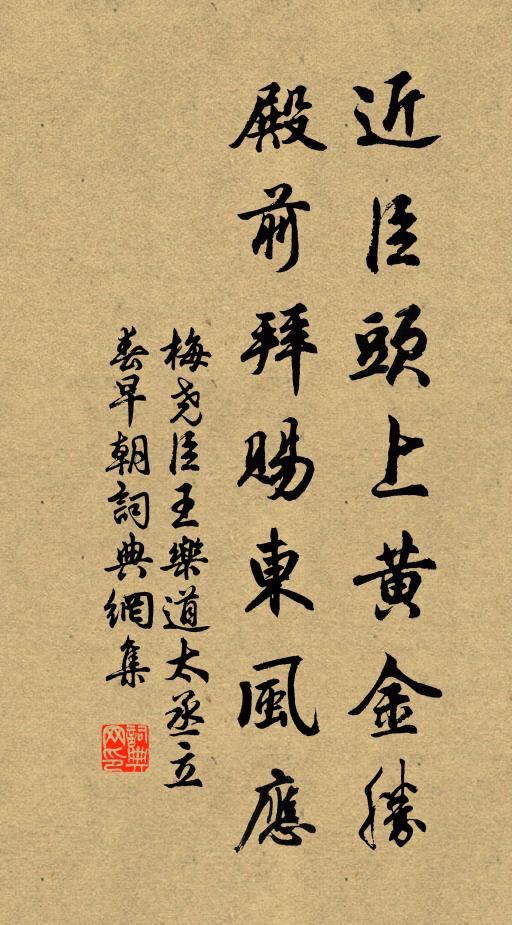 近臣頭上黄金勝
殿前拜賜東風應
梅堯臣王樂道太丞立
春早朝詞典網集
詞典
网印